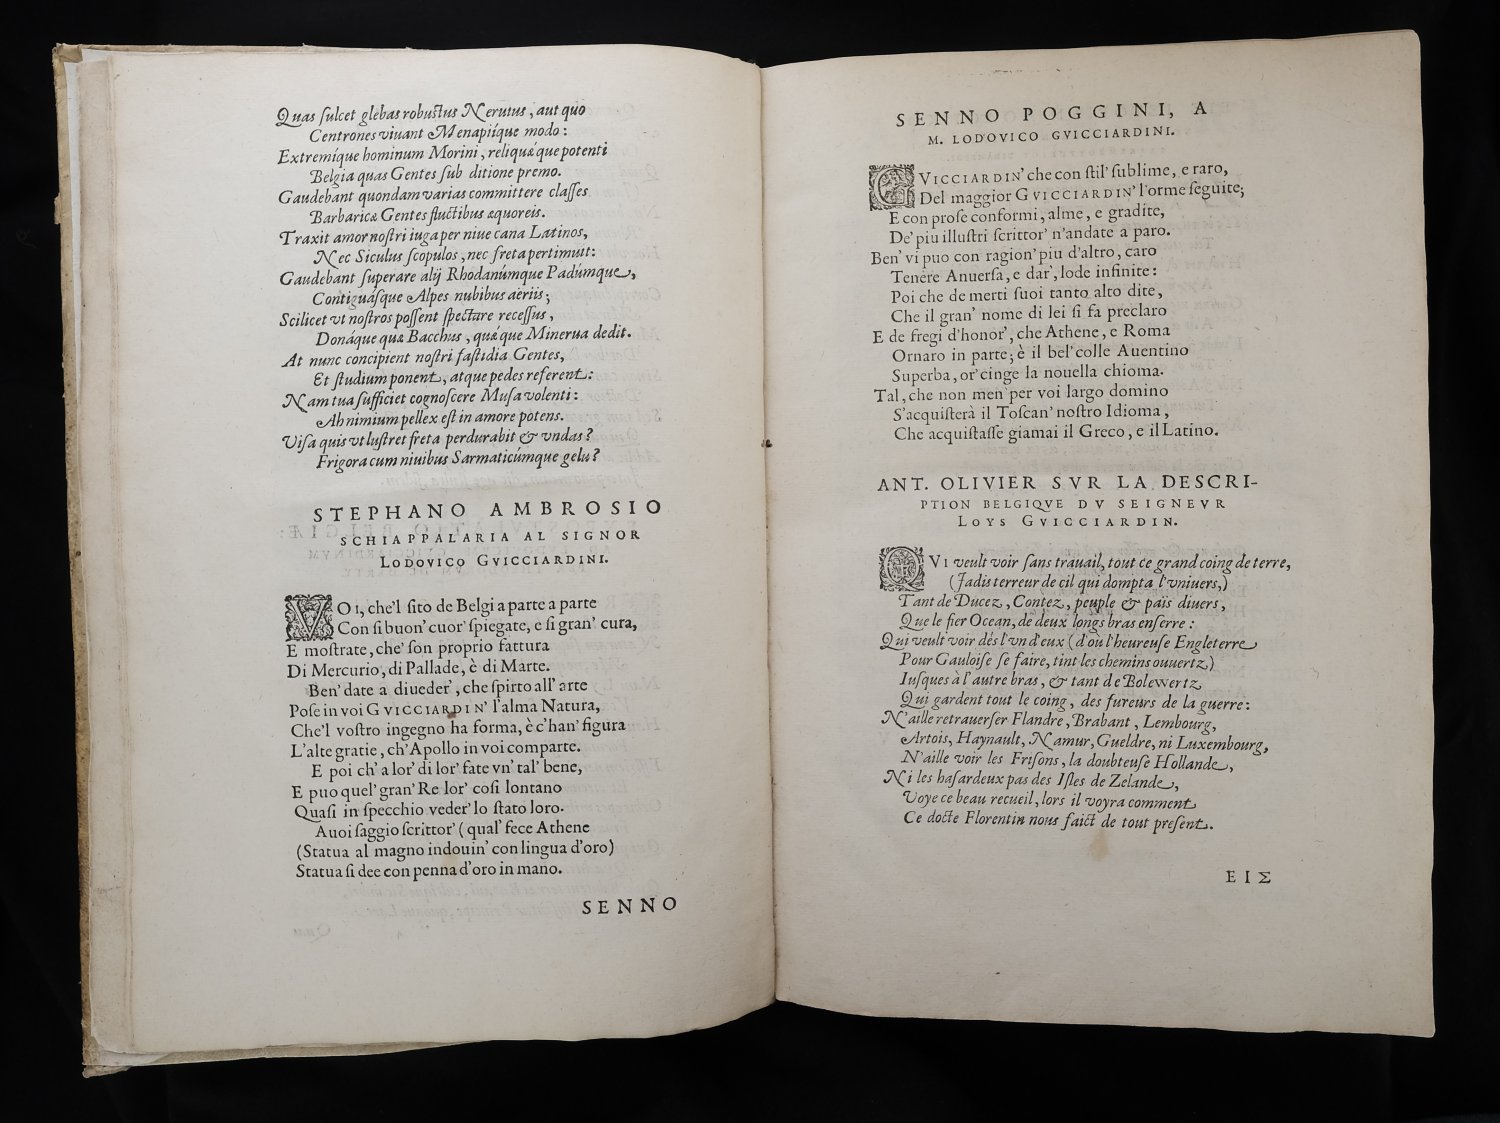 Quas ſulcet glebas robuſtus Neruius, aut quo
Centrones viuant Menapiíque modo:
Extremíque hominum Morini, reliquǽque potenti
Belgia quas Gentes ſub ditione premo.
Gaudebant quondam varias committere claſſes
Barbaricæ Gentes fluctibus æquoreis.
Traxit amor noſtri iuga per niue cana Latinos,
Nec Siculus ſcopulos, nec freta pertimuit:
Gaudebant ſuperare alij Rhodanúmque Padúmque,
Contiguáſque Alpes nubibus aëriis;
Scilicet vt noſtros poſſent ſpectare receſſus,
Donáque quæ Bacchus, quǽque Minerua dedit.
At nunc concipient noſtri faſtidia Gentes,
Et ſtudium ponent, atque pedes referent:
Nam tua ſufficiet cognoſcere Muſa volenti:
Ah nimium pellex eſt in amore potens.
Viſa quis vt luſtret freta perdurabit & vndas?
Frigora cum niuibus Sarmaticúmque gelu?
STEPHANO AMBROSIO
SCHIAPPALARIA AL SIGNOR
LODOVICO GVICCIARDINI.
VOI, che'l ſito de Belgi a parte a parte
Con ſi buon' cuor' ſpiegate, e ſi gran' cura,
E moſtrate, che' ſon proprio fattura
Di Mercurio, di Pallade, è di Marte.
Ben' date a diueder', che ſpirto all' arte
Poſe in voi GVICCIARDIN' l'alma Natura,
Che'l voſtro ingegno ha forma, è c'han' figura
L'alte gratie, ch'Apollo in voi comparte.
E poi ch' a lor' di lor' fate vn' tal' bene,
E puo quel' gran' Re lor' coſi lontano
Quaſi in ſpecchio veder' lo ſtato loro.
A uoi ſaggio ſcrittor' (qual' fece Athene
(Statua al magno indouin' con lingua d'oro)
Statua ſi dee con penna d'oro in mano.
SENNO
SENNO POGGINI, A
M. LODOVICO GVICCIARDINI.
GVICCIARDIN' che con ſtil' ſublime, e raro,
Del maggior GVICCIARDIN' l'orme ſeguite;
E con proſe conformi, alme, e gradite,
De' piu illuſtri ſcrittor' n'andate a paro.
Ben' vi puo con ragion' piu d'altro, caro
Tenére Anuerſa, e dar', lode infinite:
Poi che de merti ſuoi tanto alto dite,
Che il gran' nome di lei ſi fa preclaro
E de fregi d'honor', che Athene, e Roma
Ornaro in parte; è il bel' colle Auentino
Superba, or' cinge la nouella chioma.
Tal, che non men' per voi largo domino
S'acquiſterà il Toſcan' noſtro Idioma,
Che acquiſtaſſe giamai il Greco, e il Latino.
ANT. OLIVIER SVR LA DESCRI-
PTION BELGIQVE DV SEIGNEVR
LOYS GVICCIARDIN.
QVI veult voir ſans trauail, tout ce grand coing de terre,
(Jadis terreur de cil qui dompta l'vniuers,)
Tant de Ducez, Contez, peuple & païs diuers,
Que le fier Ocean, de deux longs bras enſerre:
Qui veult voir dés l'vn d'eux (d'où l'heureuſe Engleterre
Pour Gauloiſe ſe faire, tint les chemins ouuertz)
Iuſques à l'autre bras, & tant de Bolewertz
Qui gardent tout le coing, des fureurs de la guerre:
N'aille retrauerſer Flandre, Brabant, Lembourg,
Artois, Haynault, Namur, Gueldre, ni Luxembourg,
N'aille voir les Friſons, la doubteuſe Hollande,
Ni les haſardeux pas des Iſles de Zelande,
Voye ce beau recueil, lors il voyra comment
Ce docte Florentin nous faict de tout preſent.
ΕΙΣ